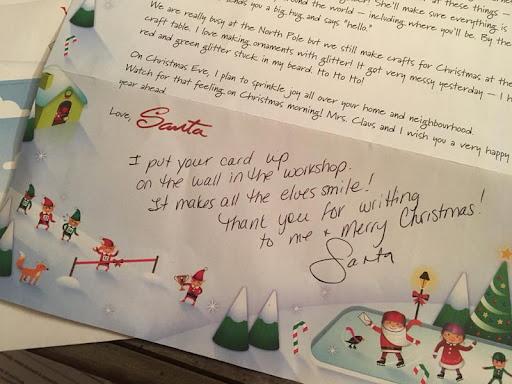 She'll make sure everything is
around the world – including where you'll be. By the
sends you a big hug and says "hello."
We are really busy at the North Pole but we still make crafts for Christmas at the
craft table. I love making ornaments with glitter! It got very messy yesterday – I h
red and green glitter stuck in my beard. Ho Ho Ho!
On Christmas Eve, I plan to sprinkle joy all over your home and neighbourhood.
Watch for that feeling on Christmas morning! Mrs. Claus and I wish you a very happy
year ahead.
Love, Santa
I put your card up
on the wall in the workshop.
It makes all the elves smile!
Thank you for writting
to me + Merry Christmas!
Santa